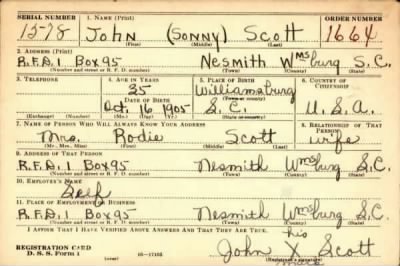 SERIAL NUMBER 1. NAME (Print) ORDER NUMBER
1578 John (Sonny) Scott 1664
(First) (Middle) (Last)
2. ADDRESS (Print)
R.F.D. 1 Box 95 Nesmith Wmsburg S.C.
(Number and street or R. F. D. number) (Town) (County) (State)
3. TELEPHONE 4. AGE IN YEARS 5. PLACE OF BIRTH 6. COUNTRY OF CITIZENSHIP
35 Williamsburg
DATE OF BIRTH (Town or county)
Oct. 16 1905 S.C. U.S.A.
(Exchange) (Number) (Mo.) (Day) (Yr.) (State or country)
7. NAME OF PERSON WHO WILL ALWAYS KNOW YOUR ADDRESS 8. RELATIONSHIP OF THAT PERSON
Mrs. Rodie Scott wife
(Mr., Mrs., Miss) (First) (Middle) (Last)
9. ADDRESS OF THAT PERSON
R.F.D. 1 Box 95 Nesmith Wmsburg S.C.
(Number and street or R. F. D. number) (Town) (County) (State)
10. EMPLOYER'S NAME
Self
11. PLACE OF EMPLOYMENT OR BUSINESS
R.F.D. 1 Box 95 Nesmith Wmsburg S.C.
(Number and street or R. F. D. number) (Town) (County) (State)
I AFFIRM THAT I HAVE VERIFIED ABOVE ANSWERS AND THAT THEY ARE TRUE.
his
REGISTRATION CARD John X Scott
D. S. S. Form 1 16—17105 (Registrant's signature)
mark